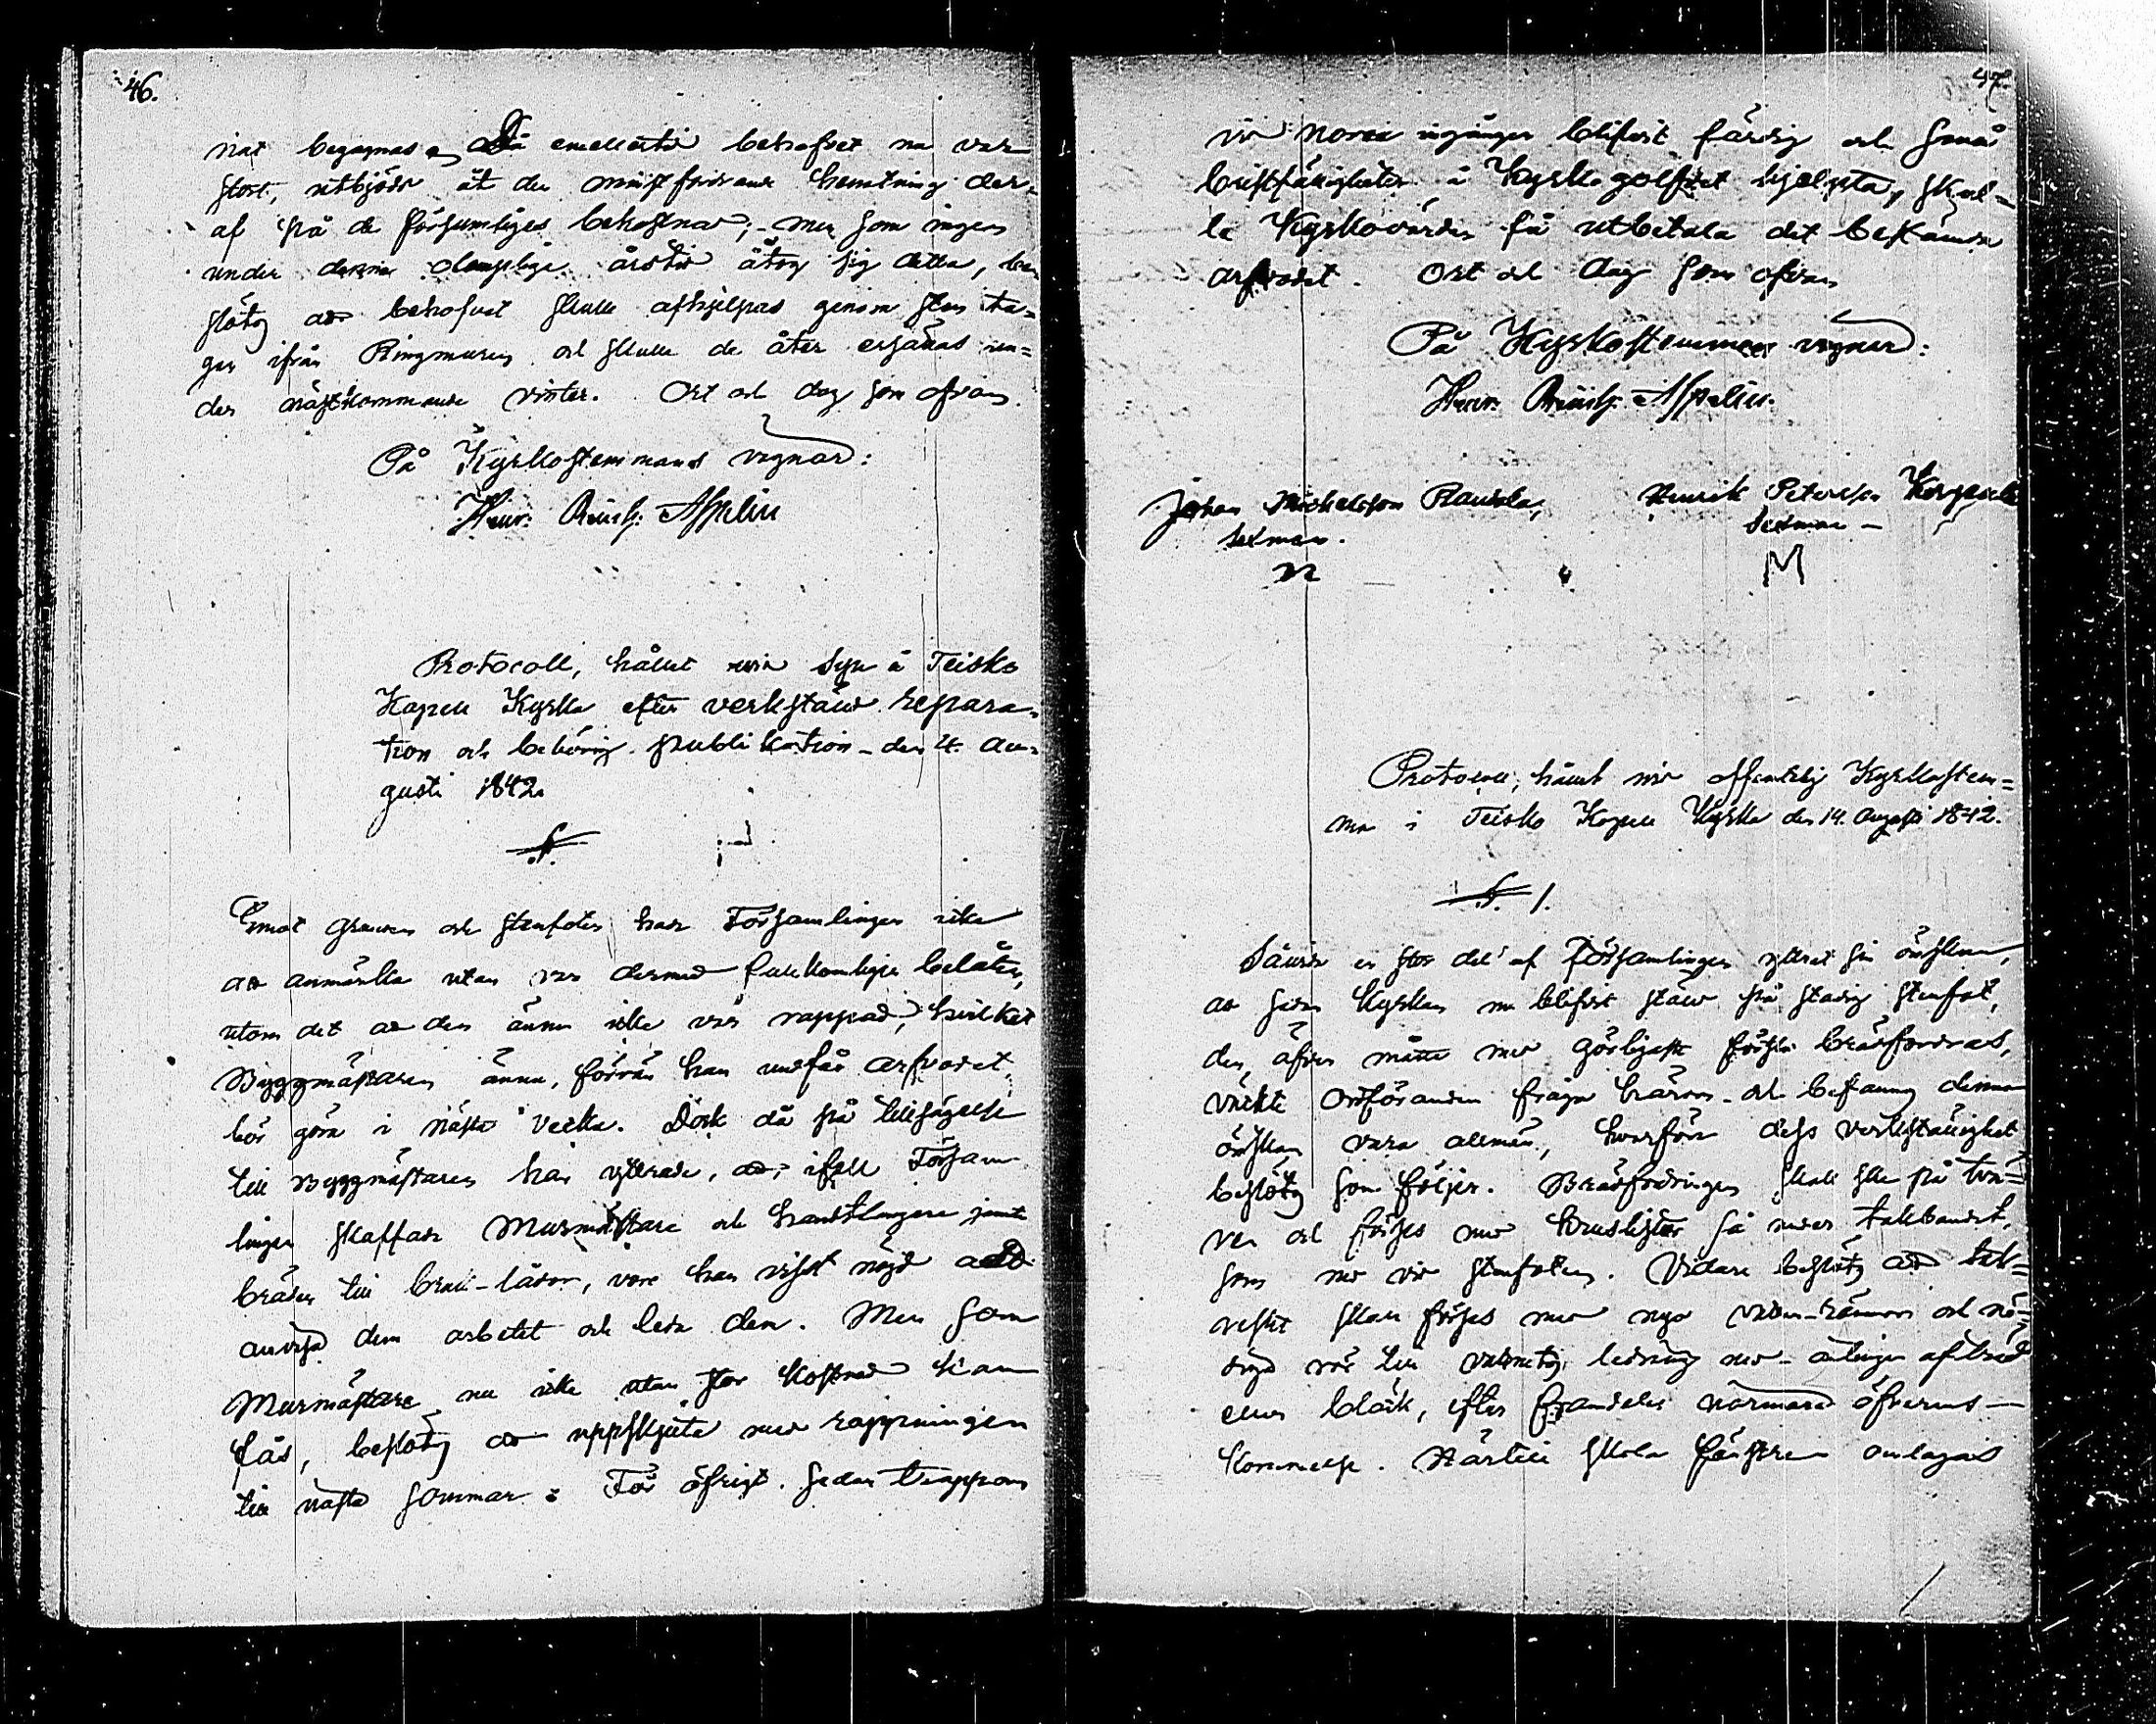 46.
nat begagnas. Då emellertid behofvet nu var
stort, utbjöds åt den minstfordrande hemtning der-
af på de försumliges bekostnad; men som ingen
under denna olämpliga årstid åtog sig detta, be-
slöts att behofvet skulle afhjelpas genom sten ta-
gen ifrån Ringmuren och skulle de åter ersättas un-
der nästkommande vinter. Ort och dag som ofvan.
På Kyrkostemmans vägnar:
Henr. Reinh. Aspelin
Protocoll, hållet vid Syn å Teisko
Kapell Kyrka efter verkstäld repara-
tion och behörig publikation den 4. Au-
gusti 1842.
§.
Emot Grunden och stenfoten hade Församlingen icke
att anmärka utan var dermed fullkomligen belåten,
utom det att den ännu icke var rappad, hvilket
Byggmästaren ännu, förrän han undfår arfvodet,
bör göra i nästa vecka. Dock då på tillfrågelse
till Byggmästaren han yttrade, att, ifall Försam-
lingen skaffade Murmästare och handtlangare jemte
bräder till bruk-lådor, vore han visst nöjd att
anvisa dem arbetet och leda dem. Men som
Murmästare nu icke utan stor kostnad kan
fås, beslöts att uppskjuta med rappningen
till nästa sommar. För öfrigt sedan trappan
47.
vid norra ingången blifvit färdig och små
bristfälligheter å Kyrkogolfvet hjelpta, skul-
le Kyrkovärden få utbetala det bestämda
arfvodet. Ort och dag som ofvan
På Kyrkostemmans vägnar:
Henr. Reinh. Aspelin.
Johan Michelsson Rautala, Henrik Petersson
Sexman. Sexman
M
Protocoll, hållet vid offentlig Kyrkostem-
ma i Teisko Kapell Kyrka den 14. Augusti 1842.
§. 1.
Sedan en stor del af Församlingen yttrat sin önskan,
att sedan Kyrkan nu blifvit stäld på stadig stenfot,
den äfven måtte med görligaste första brädfordras,
väckte Ordföranden fråga härom och befanns denna
önskan vara allmän, hvarföre dess verkställighet
beslöts som följer. Brädfodringen skall ske på
och förses med så under takbandet,
som ned vid stenfoten. Vidare beslöts att tak-
skall förses med nya vatten-rännor och nö-
diga rör till vattnets ledning ned antingen af bräd
eller bläck, efter framdeles närmare öfverens-
kommelse. Härtill skola fönstren omlagas